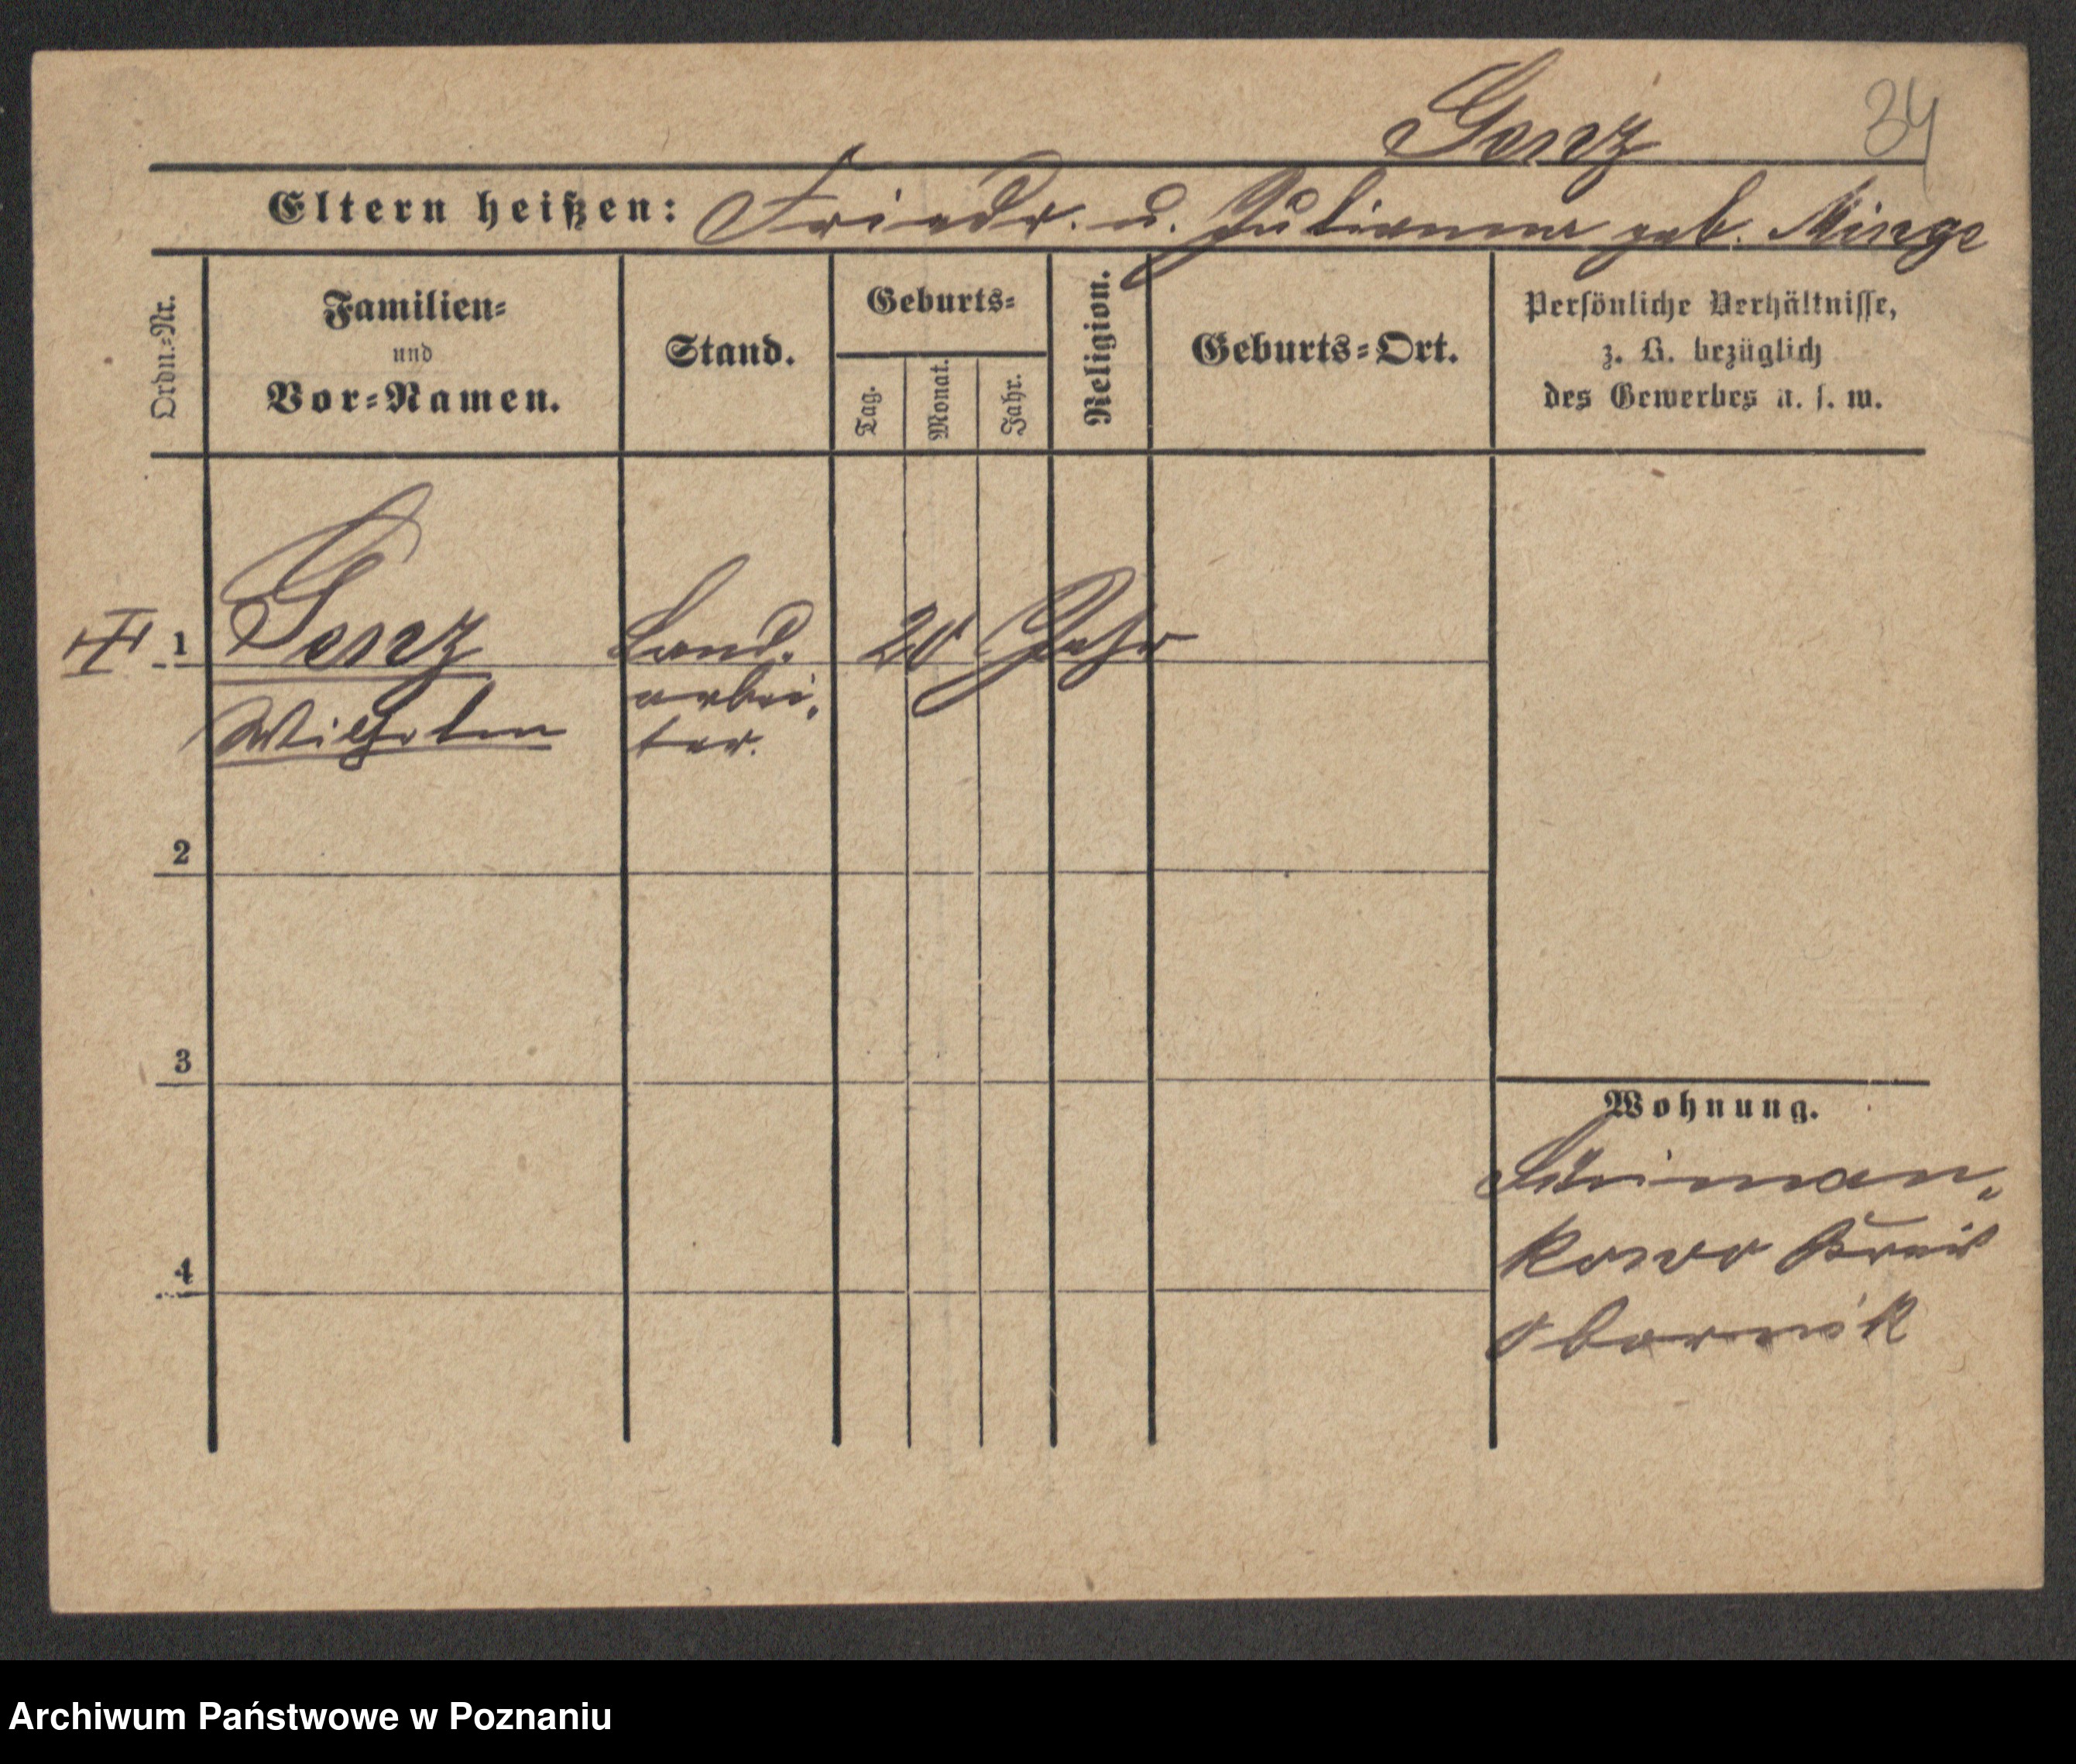 Genz
34
Eltern heißen: Friedr. u. Julianna geb. Minge
Ordn.-Nr.
Familien-
und
Vor-Namen.
Stand.
Geburts-
Tag.
Monat.
Jahr.
Religion.
Geburts-Ort.
Persönliche Verhältnisse,
z. B. bezüglich
des Gewerbes u. s. w.
1
Genz
Wilhelm
Land-
arbei-
ter.
20 Jahr
2
3
4
Wohnung.
kowo Kreis
Obornik
Archiwum Państwowe w Poznaniu